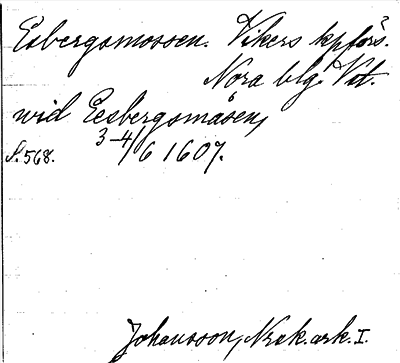 Esbergsmossen. Vikers kpförs.
Nora blg. Vstm.
wid Eesbergsmåsen,
S. 568. 3-4/6 1607.
Johansson, Nrak. ark. I.